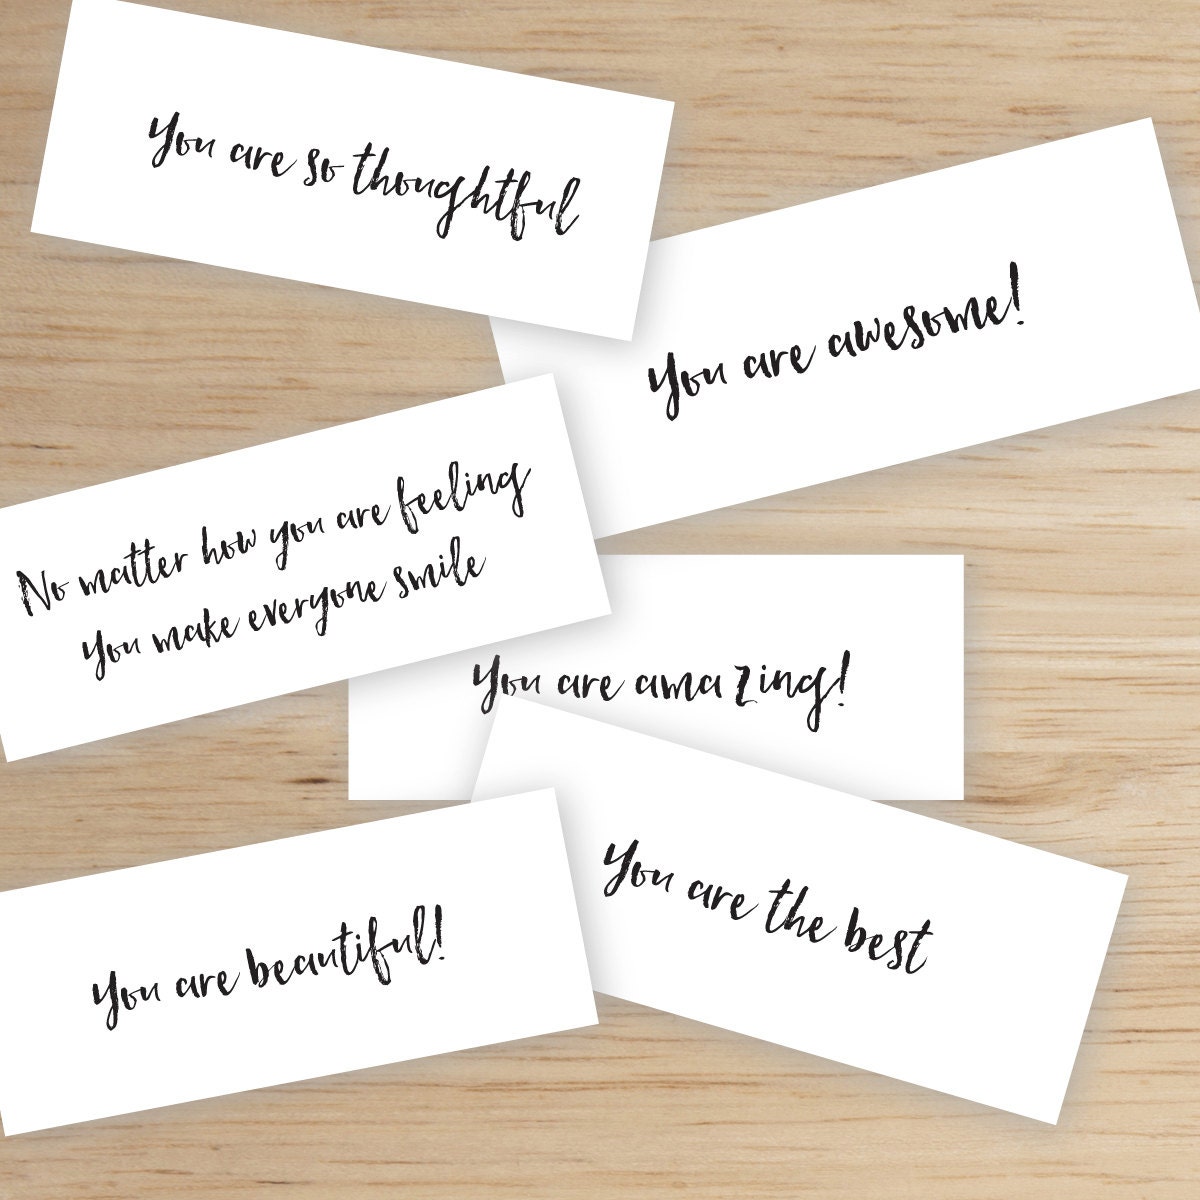 You are so thoughtful
You are awesome!
No matter how you are feeling
You make everyone smile
You are amazing!
You are the best
You are beautiful!